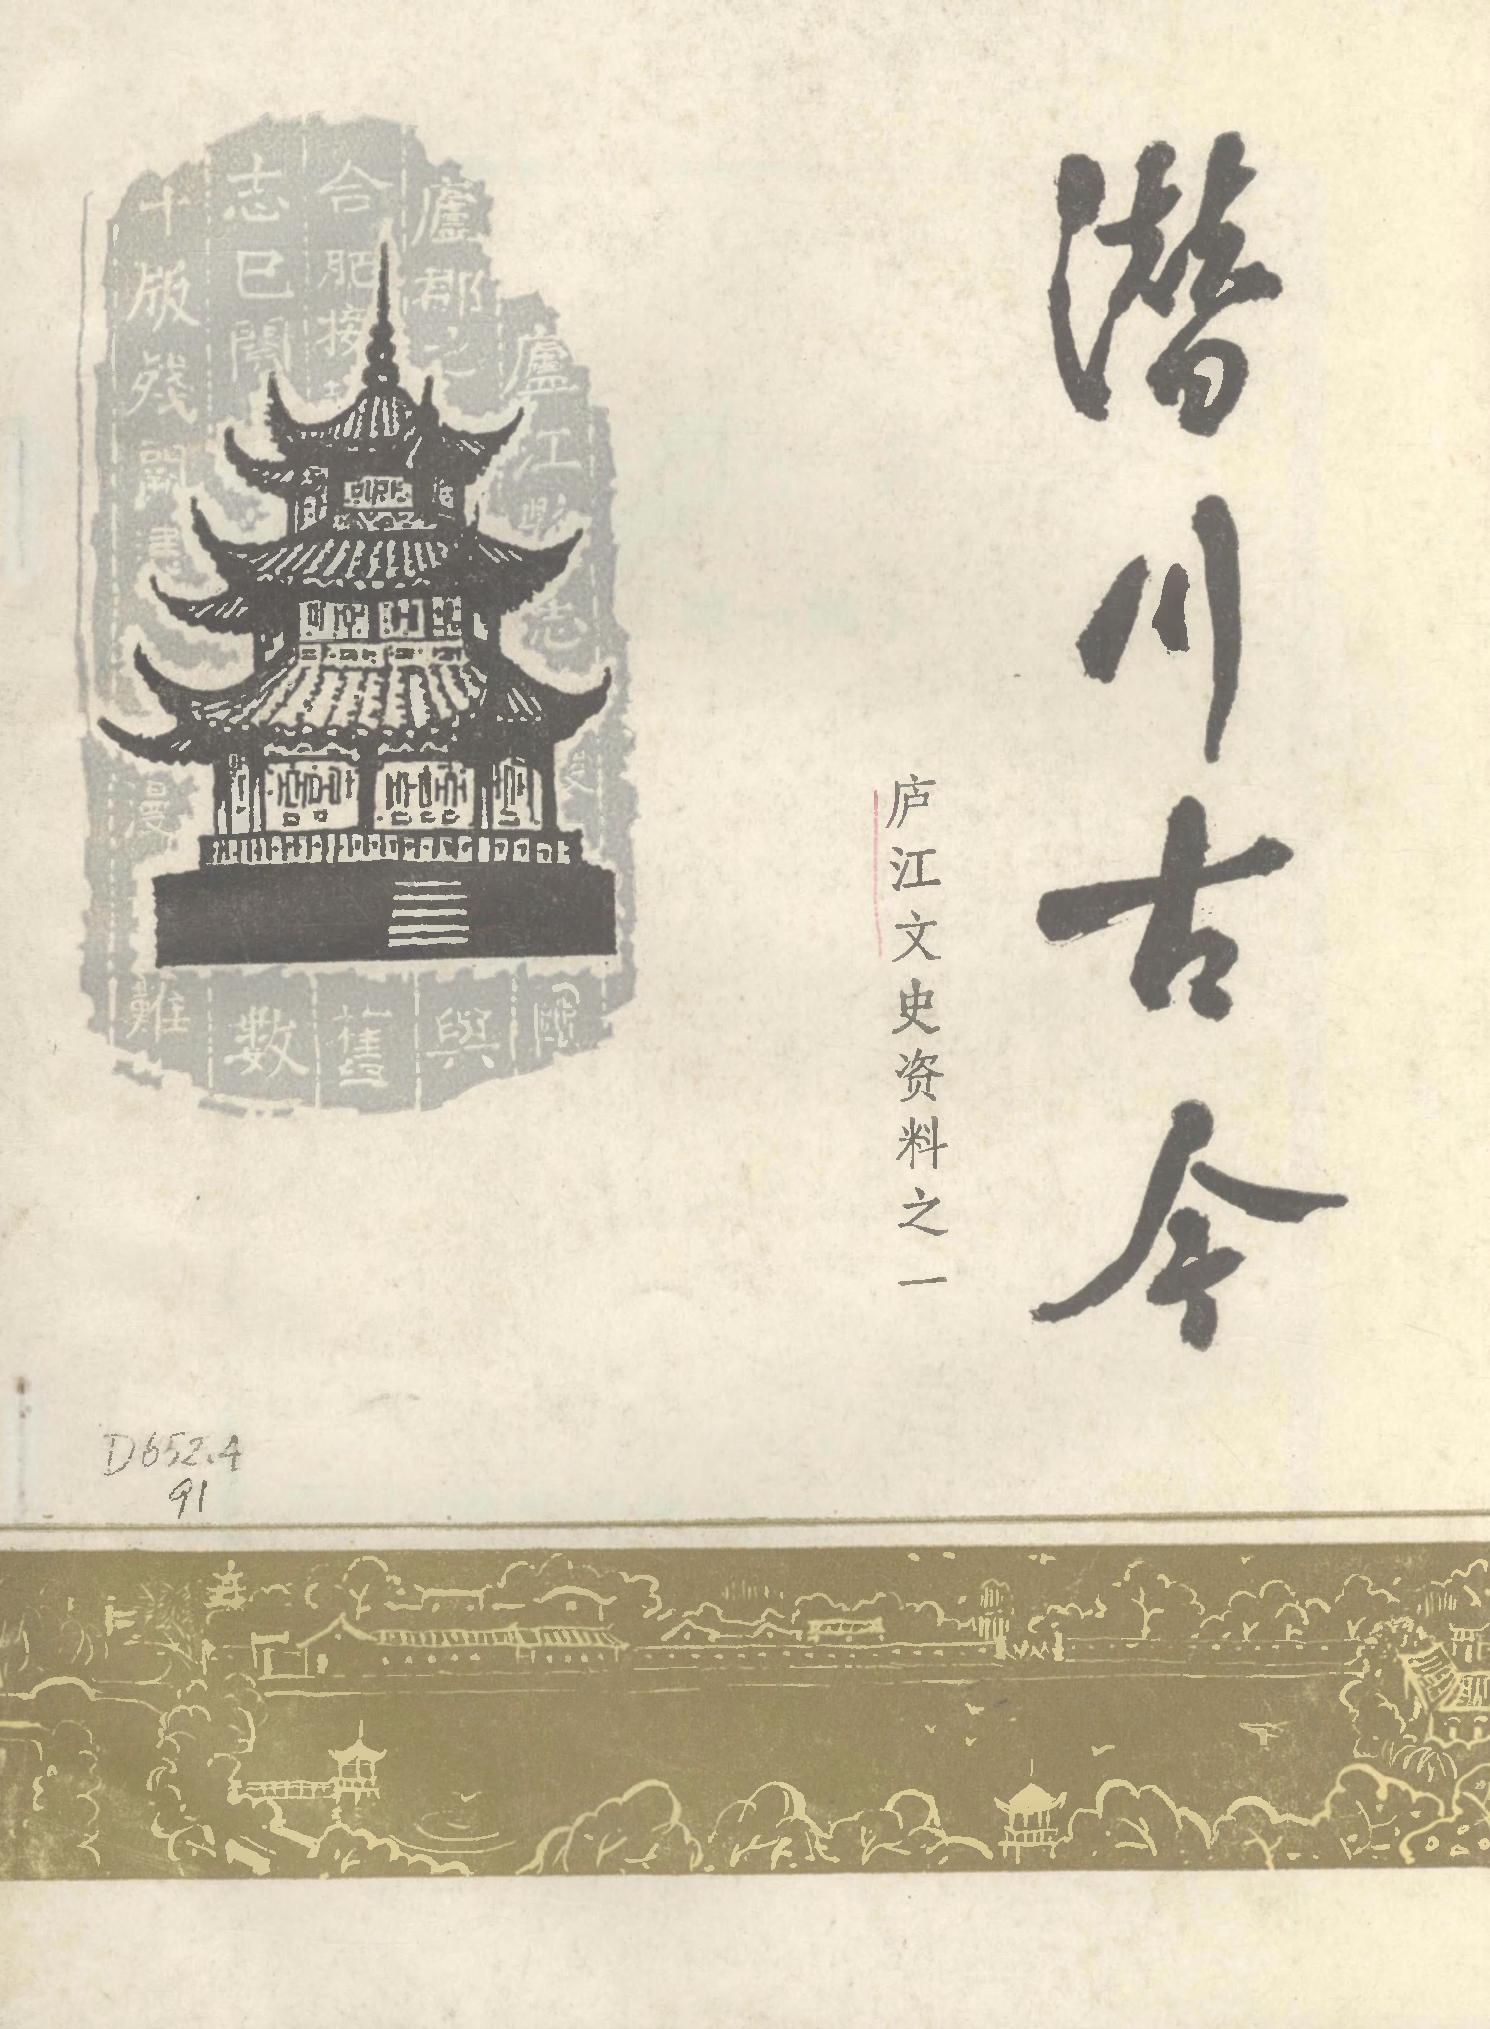 潜川古今
庐江文史资料之一
廬江縣志
廬郡之 與
合肥接 舊
志已闕 數
十版殘闕 漫 難
D652.4
91